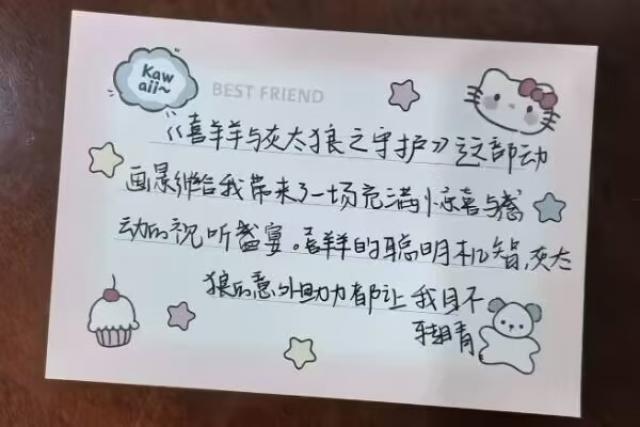 Kaw
aii~
BEST FRIEND
《喜羊羊与灰太狼之守护》这部动
画影给我带来了一场充满惊喜与感
动的视听盛宴。喜羊羊的聪明机智,灰太
狼的意外助力都让我目不
转睛